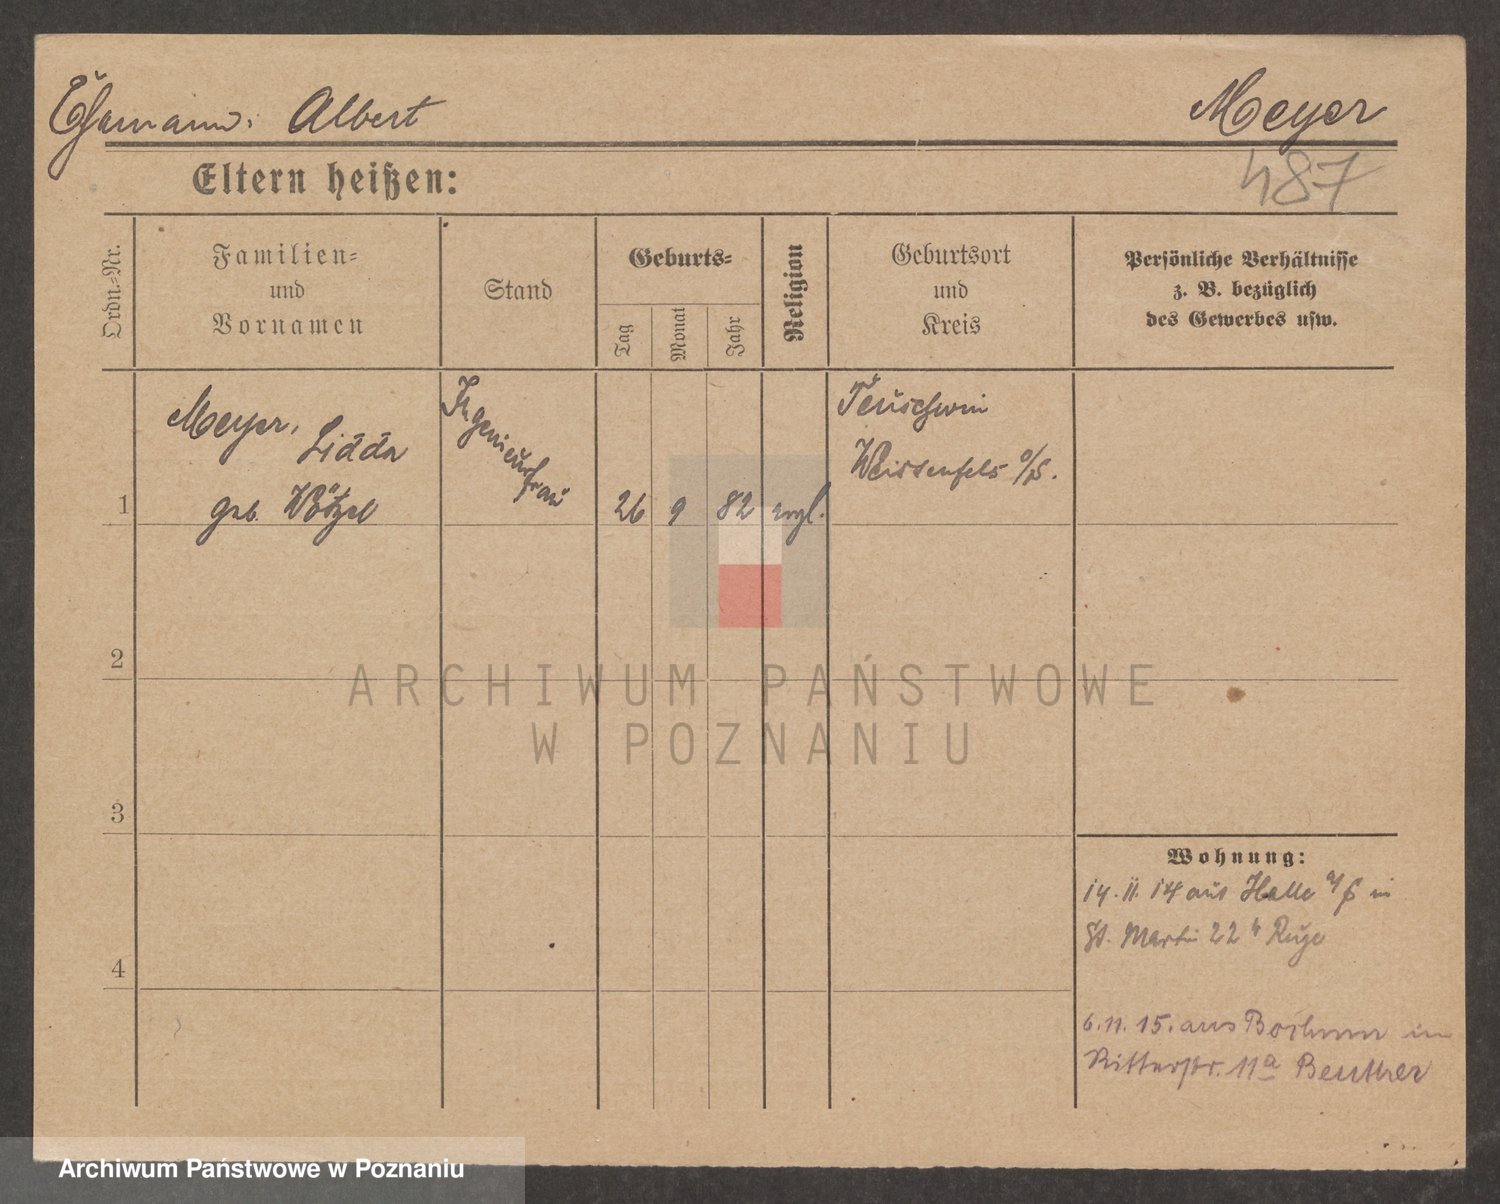 Ehemann: Albert Meyer
487
Eltern heißen:
Ordn.-Nr.
Familien-
und
Vornamen
Stand
Geburts-
Tag
Monat
Jahr
Religion
Geburtsort
und
Kreis
Persönliche Verhältnisse
z. B. bezüglich
des Gewerbes usw.
1
Meyer,
Lidda
geb. Wötzel
Ingenieurs
frau
26 9 82 evgl.
Teuschern
Weissenfels a/S.
2
3
4
Wohnung:
14. 11. 14 aus Halle a/S in
St. Martin 22 b
6. 11. 15. aus Bochum in
Ritterstr. 11a Beuther
ARCHIWUM PAŃSTWOWE
W POZNANIU
Archiwum Państwowe w Poznaniu